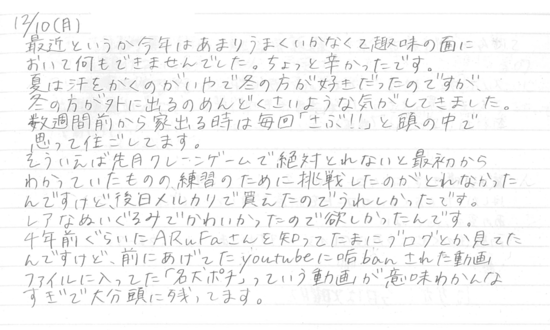 12/10(月)
最近というか今年はあまりうまくいかなくて趣味の面に
おいて何もできませんでした。ちょっと辛かったです。
夏は汗をかくのがいやで冬の方が好きだったのですが、
冬の方が外に出るのめんどくさいような気がしてきました。
数週間前から家出る時は毎回「さぶ!!」と頭の中で
思って往ごしてます。
そういえば先月クレーンゲームで絶対とれないと最初から
わかっていたものの練習のために挑戦したのがとれなかった
んですけど、後日メルカリで買えたのでうれしかったです。
レアなぬいぐるみでかわいかったので欲しかったんです。
4年前ぐらいにARuFaさんを知ってたまにブログとか見てた
んですけど、前にあげてたyoutubeに垢banされた動画
ファイルに入ってた「名犬ポチ」っていう動画が意味わかんな
すぎて大分頭に残ってます。